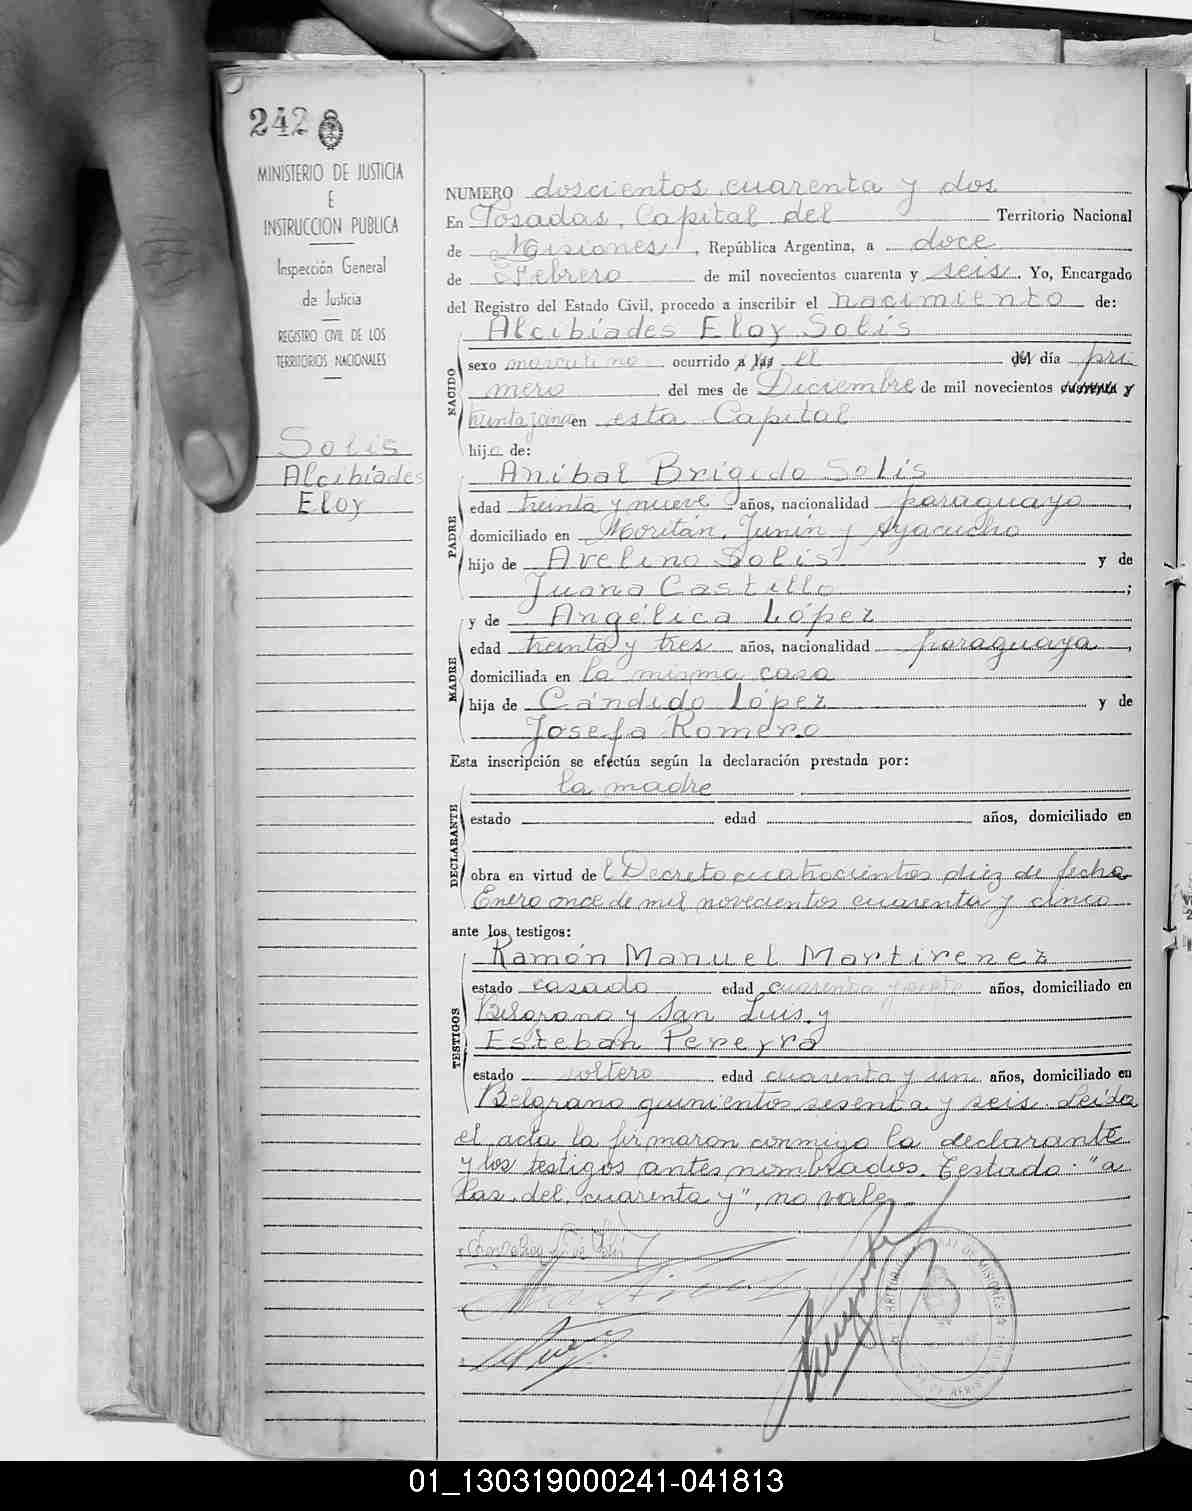 242
MINISTERIO DE JUSTICIA
E
INSTRUCCION PUBLICA
Inspección General
de Justicia
REGISTRO CIVIL DE LOS
TERRITORIOS NACIONALES
Solís
Alcibíades
Eloy
NUMERO doscientos cuarenta y dos
En Posadas, Capital del Territorio Nacional
de Misiones, República Argentina, a doce
de Febrero de mil novecientos cuarenta y seis. Yo, Encargado
del Registro del Estado Civil, procedo a inscribir el nacimiento de:
Alcibíades Eloy Solís
NACIDO
sexo masculino ocurrido a las el del día pri
mero del mes de Diciembre de mil novecientos cuarenta y
treinta y cinco en esta Capital
hijo de:
PADRE
Aníbal Brígido Solís
edad treinta y nueve años, nacionalidad paraguayo,
domiciliado en Junín y Ayacucho
hijo de Avelino Solís y de
Juana Castillo;
MADRE
y de Angélica López
edad treinta y tres años, nacionalidad paraguaya,
domiciliada en la misma casa
hija de Cándido López y de
Josefa Romero
Esta inscripción se efectúa según la declaración prestada por:
DECLARANTE
la madre
estado edad años, domiciliado en
obra en virtud de l Decreto cuatrocientos diez de fecha
Enero once de mil novecientos cuarenta y cinco
ante los testigos:
TESTIGOS
Ramón Manuel Martirenez
estado casado edad cuarenta y siete años, domiciliado en
Belgrano y San Luis y
Esteban Pereyra
estado soltero edad cuarenta y un años, domiciliado en
Belgrano quinientos sesenta y seis. Leída
el acta la firmaron conmigo la declarante
y los testigos antes nombrados. Testado: "a
las, del, cuarenta y", no vale.
01_130319000241-041813